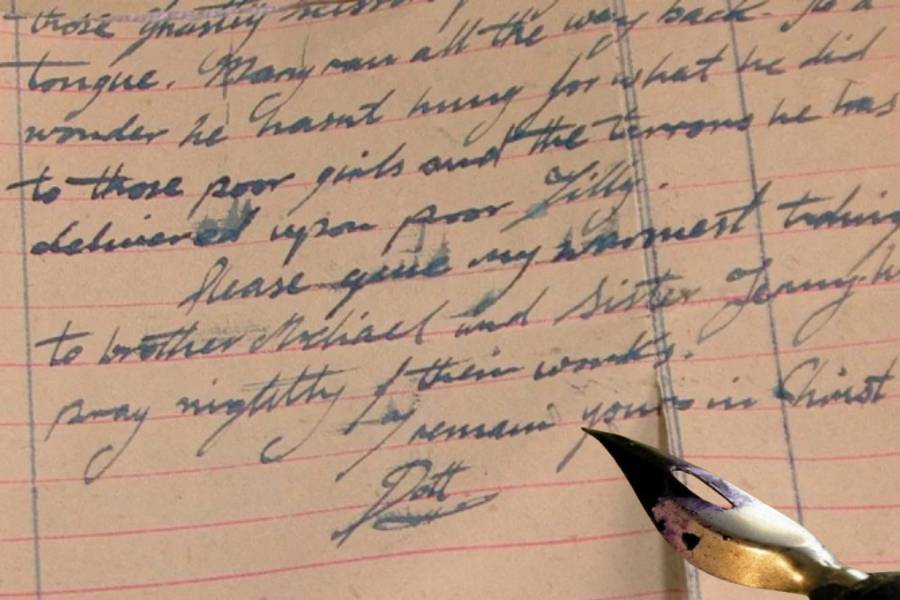 those ghastly
tongue. Mary ran all the way back. Is a
wonder he hasnt hung for what he did
to those poor girls and the terrors he has
delivered upon poor Tilly.
Please give my warmest tiding
to brother Michael and Sister Jenny
pray nightly f their works.
I remain yours in Christ